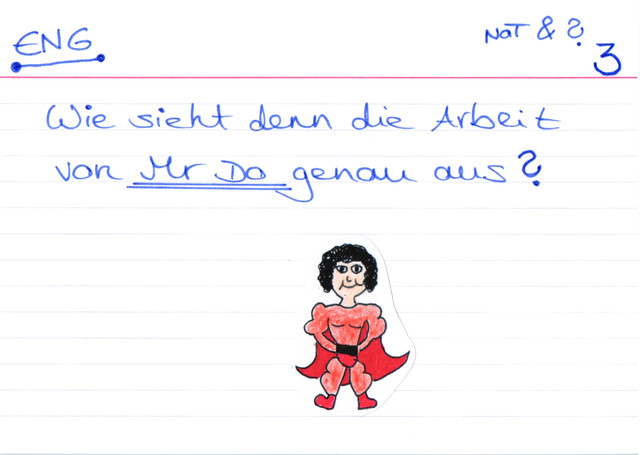 ENG
NOT & ?
3
Wie sieht denn die Arbeit
von Mr Do genau aus?